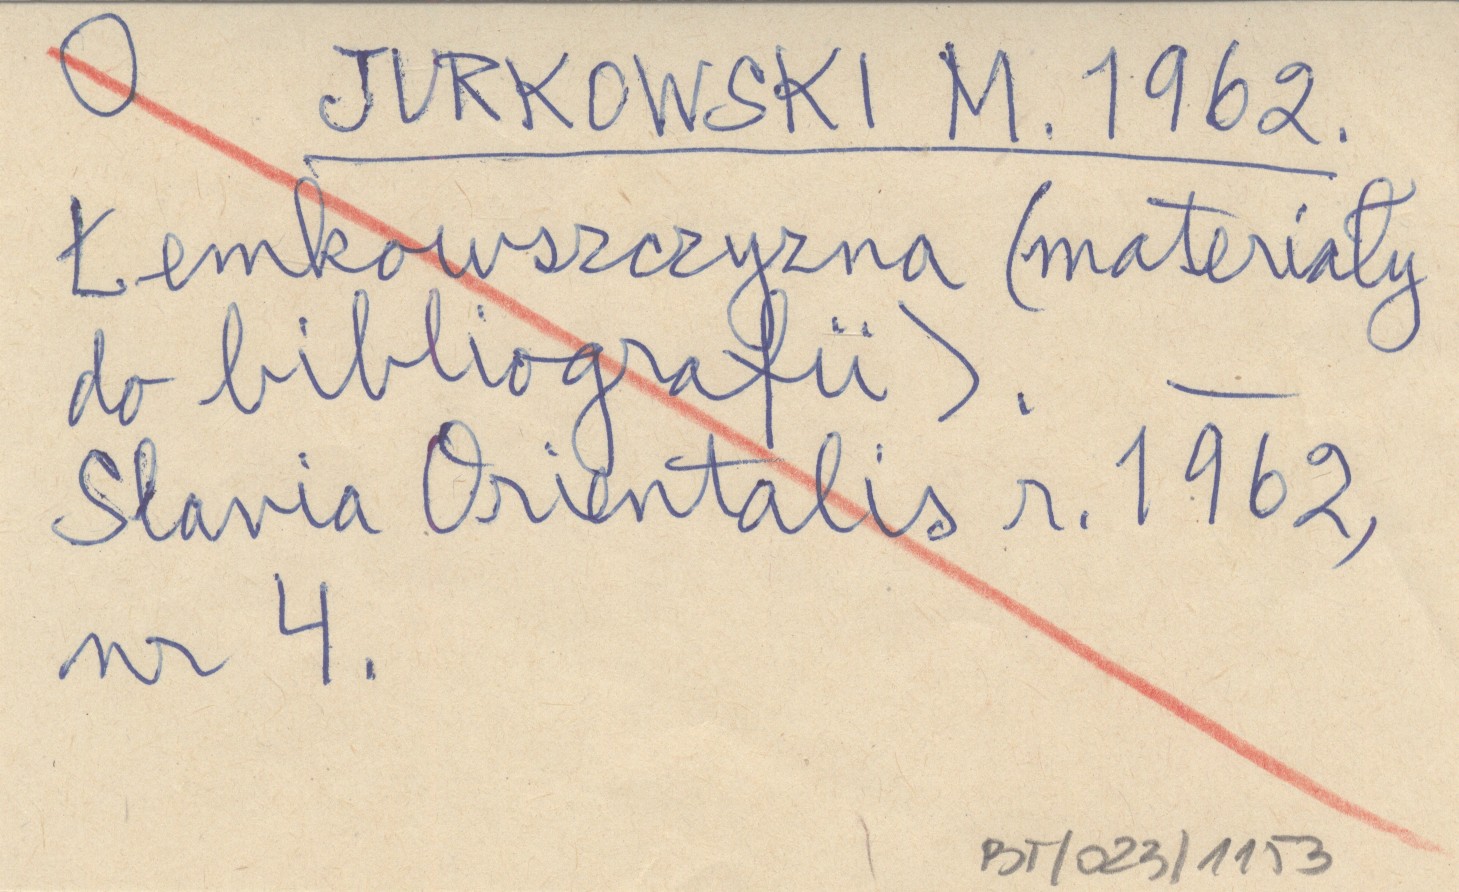 O JURKOWSKI M. 1962.
Łemkowszczyzna (materiały
do bibliografii). —
Slavia Orientalis r. 1962,
nr 4.
BT/023/1153